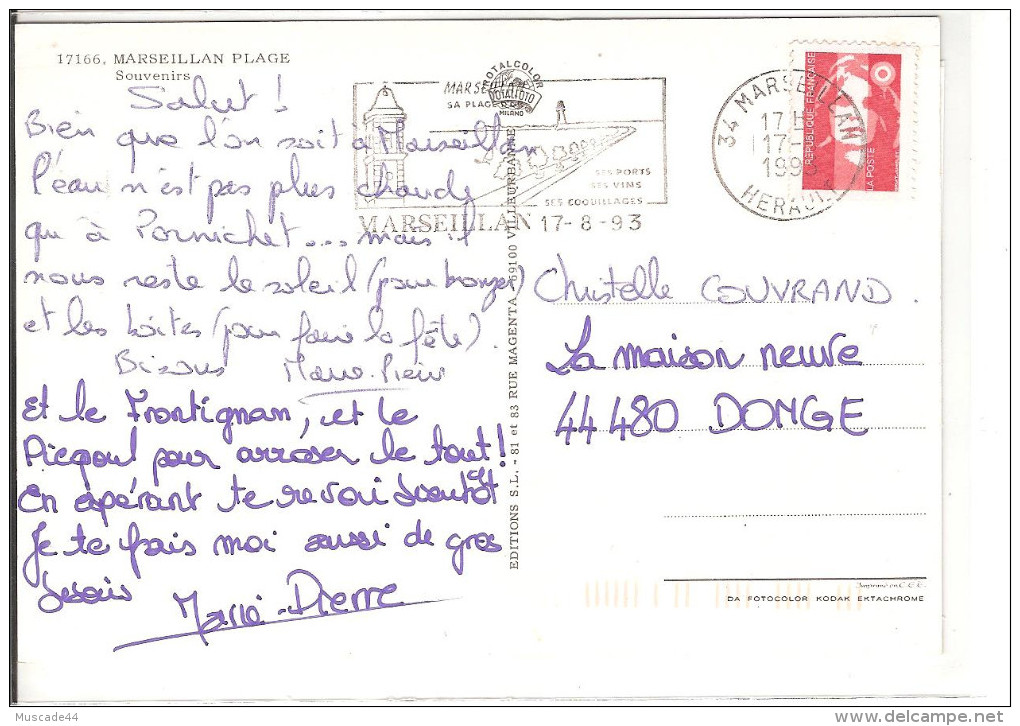 17166, MARSEILLAN PLAGE
Souvenirs
Salut !
Bien que l'on soit à Marseillan
l'eau n'est pas plus chaude
qu'à Pornichet... mais il
nous reste le soleil (pour bronzer)
et les boites (pour faire la fête).
Bisous
Et le Frontignan, et le
Picpoul pour arroser le tout !
En espérant te revoir bientôt
Je te fais moi aussi de gros
bisous Marie-Pierre
TOTALCOLOR
TOTALFOTO
MILANO
SA PLAGE
SES PORTS
SES VINS
SES COQUILLAGES
MARSEILLAN 17-8-93
34 MARSEILLAN
1993
HERAULT
REPUBLIQUE FRANÇAISE
LA POSTE
EDITIONS S.L. - 81 et 83 RUE MAGENTA - 69100 VILLEURBANNE
Christelle COUVRAND.
La maison neuve
44480 DONGE
Imprimé en C.E.E.
DA FOTOCOLOR KODAK EKTACHROME
Muscade44
delcampe.net